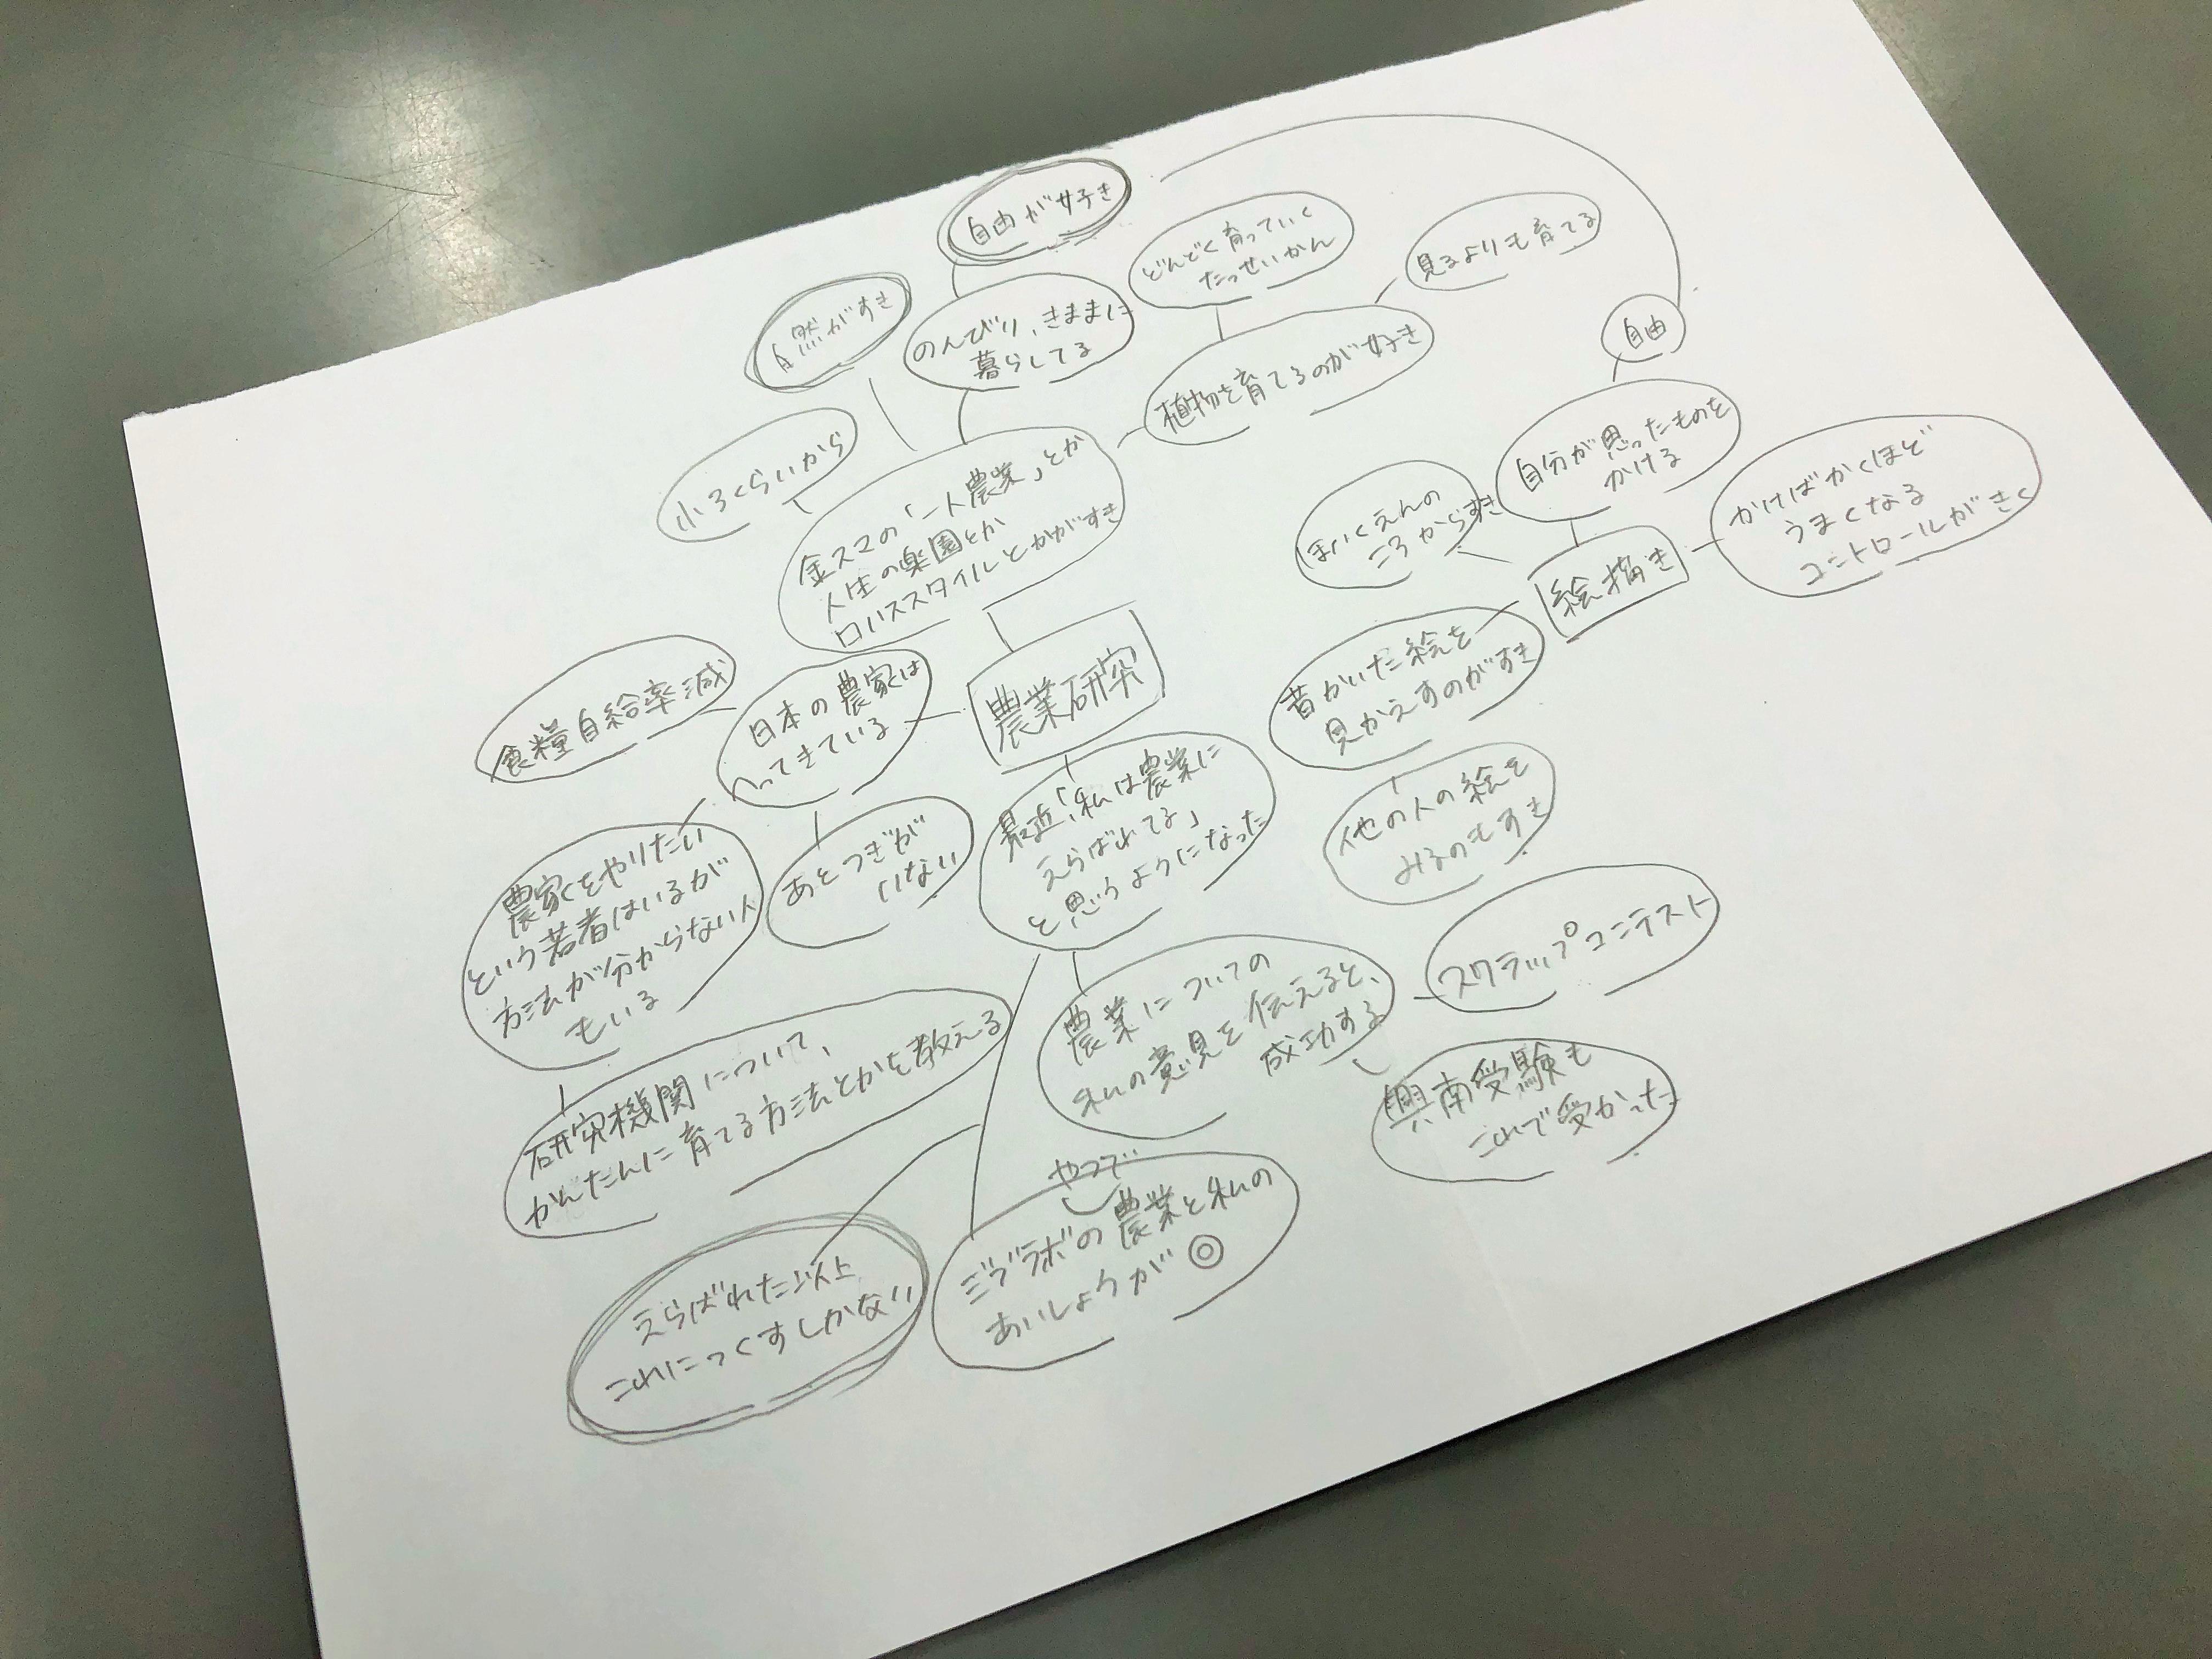 自由が好き
自然がすき
のんびり、きままに
暮らしてる
どんどく育っていく
たっせいかん
見るよりも育てる
植物を育てるのが好き
小3くらいから
金スマの「一人農業」とか
人生の楽園とか
ロハススタイルとかがすき
自由
自分が思ったものを
かける
ほいくえんの
ころからすき
かけばかくほど
うまくなる
コントロールがきく
絵描き
昔かいた絵を
見かえすのがすき
他の人の絵を
みるのもすき
農業研究
日本の農家は
へってきている
食糧自給率減
農家をやりたい
という若者はいるが
方法が分からない人
もいる
あとつぎが
いない
最近「私は農業に
えらばれてる」
と思うようになった
研究機関について、
かんたんに育てる方法とかを教える
農業についての
私の意見を伝えると、
成功する
スクラップコンテスト
興南受験も
これで受かった
やつで
ミヅラボの農業と私の
あいしょうが◎
えらばれた以上
これにつくすしかない